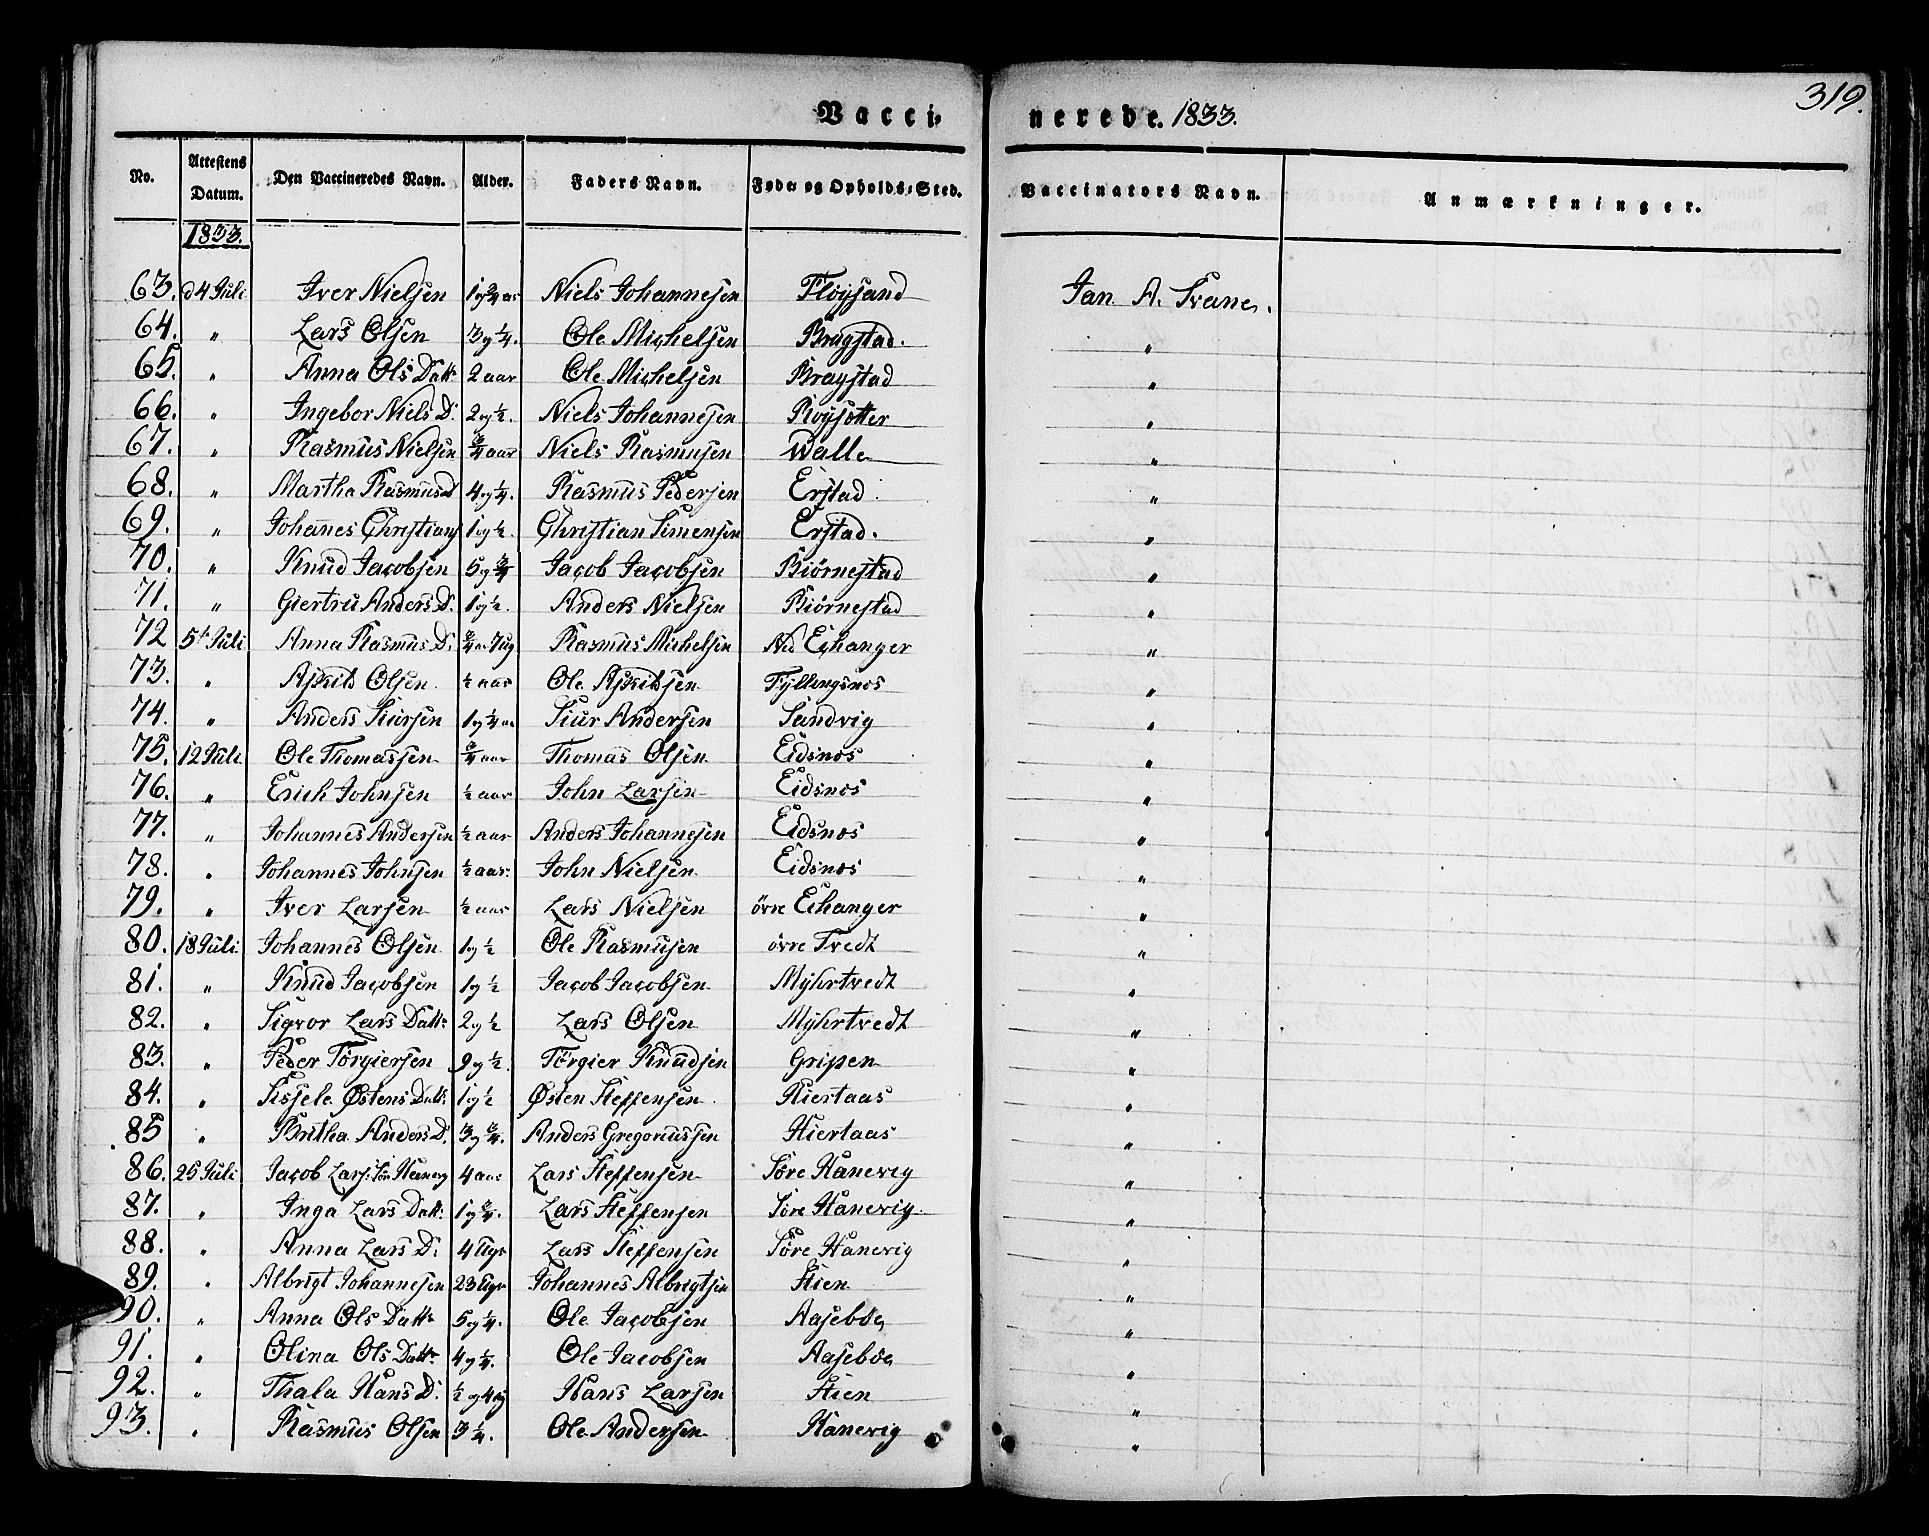 319.
Vacci- nerede. 1833.
No. Attestens Datum. Den Vaccineredes Navn. Alder. Faders Navn. Føde og Opholds-Sted. Vaccinators Navn. Anmærkninger.
1833.
63. d 4 Juli Iver Nielsen 1 og 3/4 aar Niels Johannesen Fløysand Jan A. Svane.
64. " Lars Olsen 3 og 1/4. Ole Michelsen Bragstad. "
65. " Anna Ols Datt: 2 aar Ole Michelsen Bragstad "
66. " Ingebor Niels D: 2 og 1/2. Niels Johannesen Røysetter "
67. " Rasmus Nielsen 3/4 aar Niels Rasmusen Walle "
68. " Martha Rasmus D 4 og 1/4. Rasmus Pedersen Erstad. "
69. " Johanes Christians 1 og 1/2. Christian Simensen Erstad. "
70. " Knud Jacobsen 5 og 3/4 Jacob Jacobsen Biørnestad "
71. " Giertru Anders D. 1 og 1/2. Anders Nielsen Biørnestad "
72 5t Juli Anna Rasmus D: Rasmus Michelsen Ned Eihanger "
73. " Askild Olsen 1/2 aar Ole Askildsen Fyllingsnos "
74. " Anders Siursen 1 og 1/4 aa Siur Andersen Sandvig "
75. 12 Juli Ole Thomassen 3/4 aar Thomas Olsen Eidsnos "
76. " Erich Johnsen 1/2 aar John Larsen Eidsnos "
77. " Johannes Andersen 1/2 aar Anders Johannesen Eidsnos "
78. " Johannes Johnsen 1/2 aar. John Nielsen Eidsnos "
79. " Iver Larsen 1/2 aar Lars Nielsen øvre Eihanger "
80. 18 Juli Johannes Olsen 1 og 1/2 Ole Rasmusen øvre Tvedt "
81. " Knud Jacobsen 1 og 1/2 Jacob Jacobsen Myhrtvedt "
82. " Sigvor Lars Datt: 2 og 1/2 Lars Olsen Myhrtvedt "
83. " Peder Torgiersen 9 og 1/2 Torgier Knudsen Gripen "
84. " Sisele Østens Datt: 1 og 1/2 Østen Steffensen Hiertaas "
85 " Britha Anders D. 3 og 3/4. Anders Gregoriussen Hiertaas "
86. 25 Juli Jacob Lars: 4 aar Lars Steffensen Søre Hanevig "
87. " Inga Lars Datt: 1 og 3/4. Lars Steffensen Søre Hanevig "
88. " Anna Lars D: 4 Ugr Lars Steffensen Søre Hanevig "
89. " Albrigt Johannesen 23 Ugr Johannes Albrigtsen Stien "
90. " Anna Ols Datt: 5 og 1/4. Ole Jacobsen Aasebøe "
91. " Olina Ols Datt: 4 og 1/4. Ole Jacobsen Aasebøe "
92. " Thala Hans D. Hans Larsen Stien "
93. " Rasmus Olsen 3 1/4. Ole Andersen Hanevig "